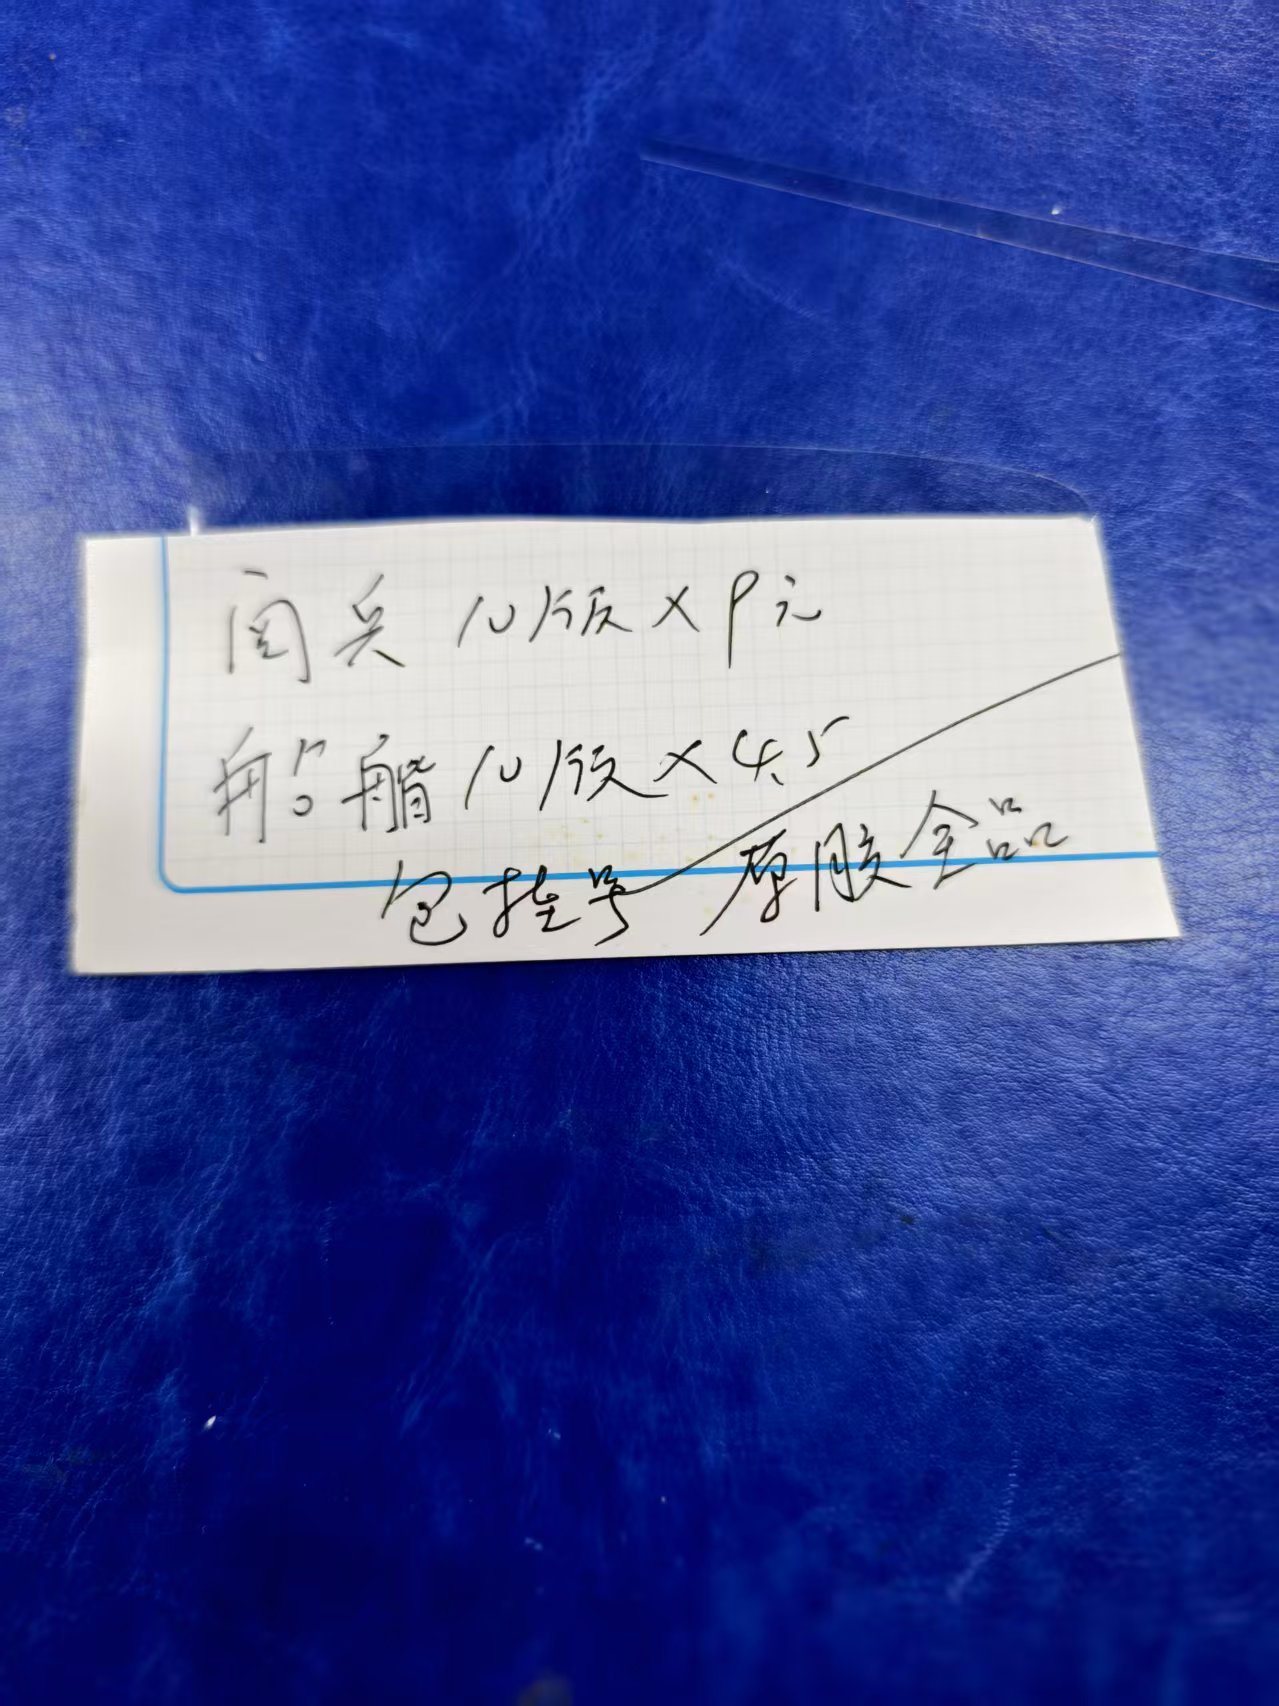 阅兵 10版×9元
船艏 10版×4.5
包挂号 原胶全品